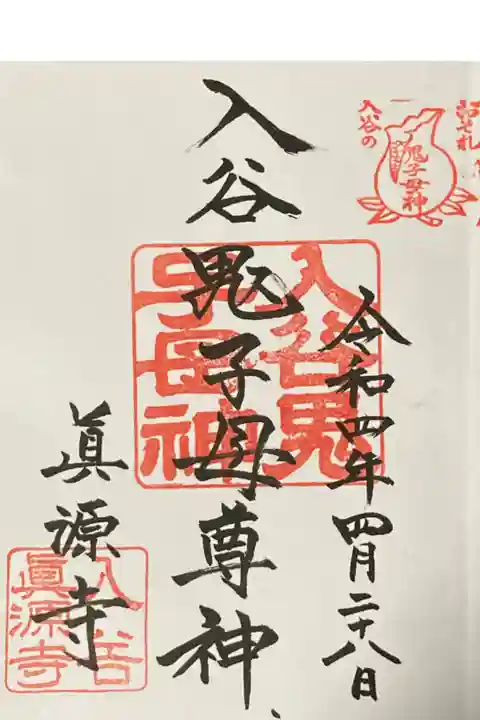 恐れ入谷の
鬼子母神
令和四年四月二十八日
入谷鬼子母尊神
入谷鬼
子母神
眞源寺
入谷
眞源寺